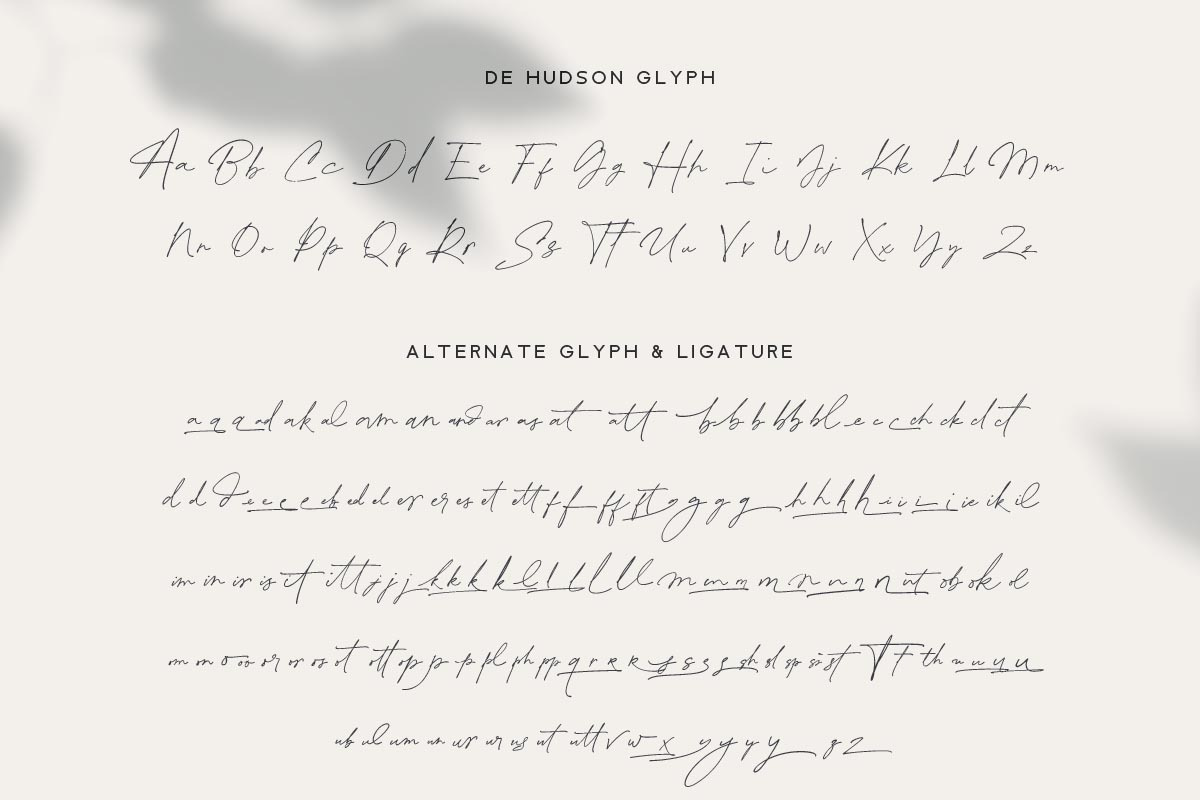 DE HUDSON GLYPH
Aa Bb Cc Dd Ee Ff Gg Hh Ii Jj Kk Ll Mm
Nn Oo Pp Qq Rr Ss Tt Uu Vv Ww Xx Yy Zz
ALTERNATE GLYPH & LIGATURE
a a q a ad ak al am an and ar as at att b b b b bb bl e c c ch ck cl ct
d d d e e e e eb ed el ev er es et ett f f ff ft g g g g h h h h i i i i ie ik il
im in ir is it itt j j j k k k k l l l l ll m m m m n n n n nt ob ok ol
om on o oo or ov os ot ott op p p pl ph pp q r r r s s s s sh sl sp ss st T F th u u u u
ub ul um un uv ur us ut utt v w x y y y y z z